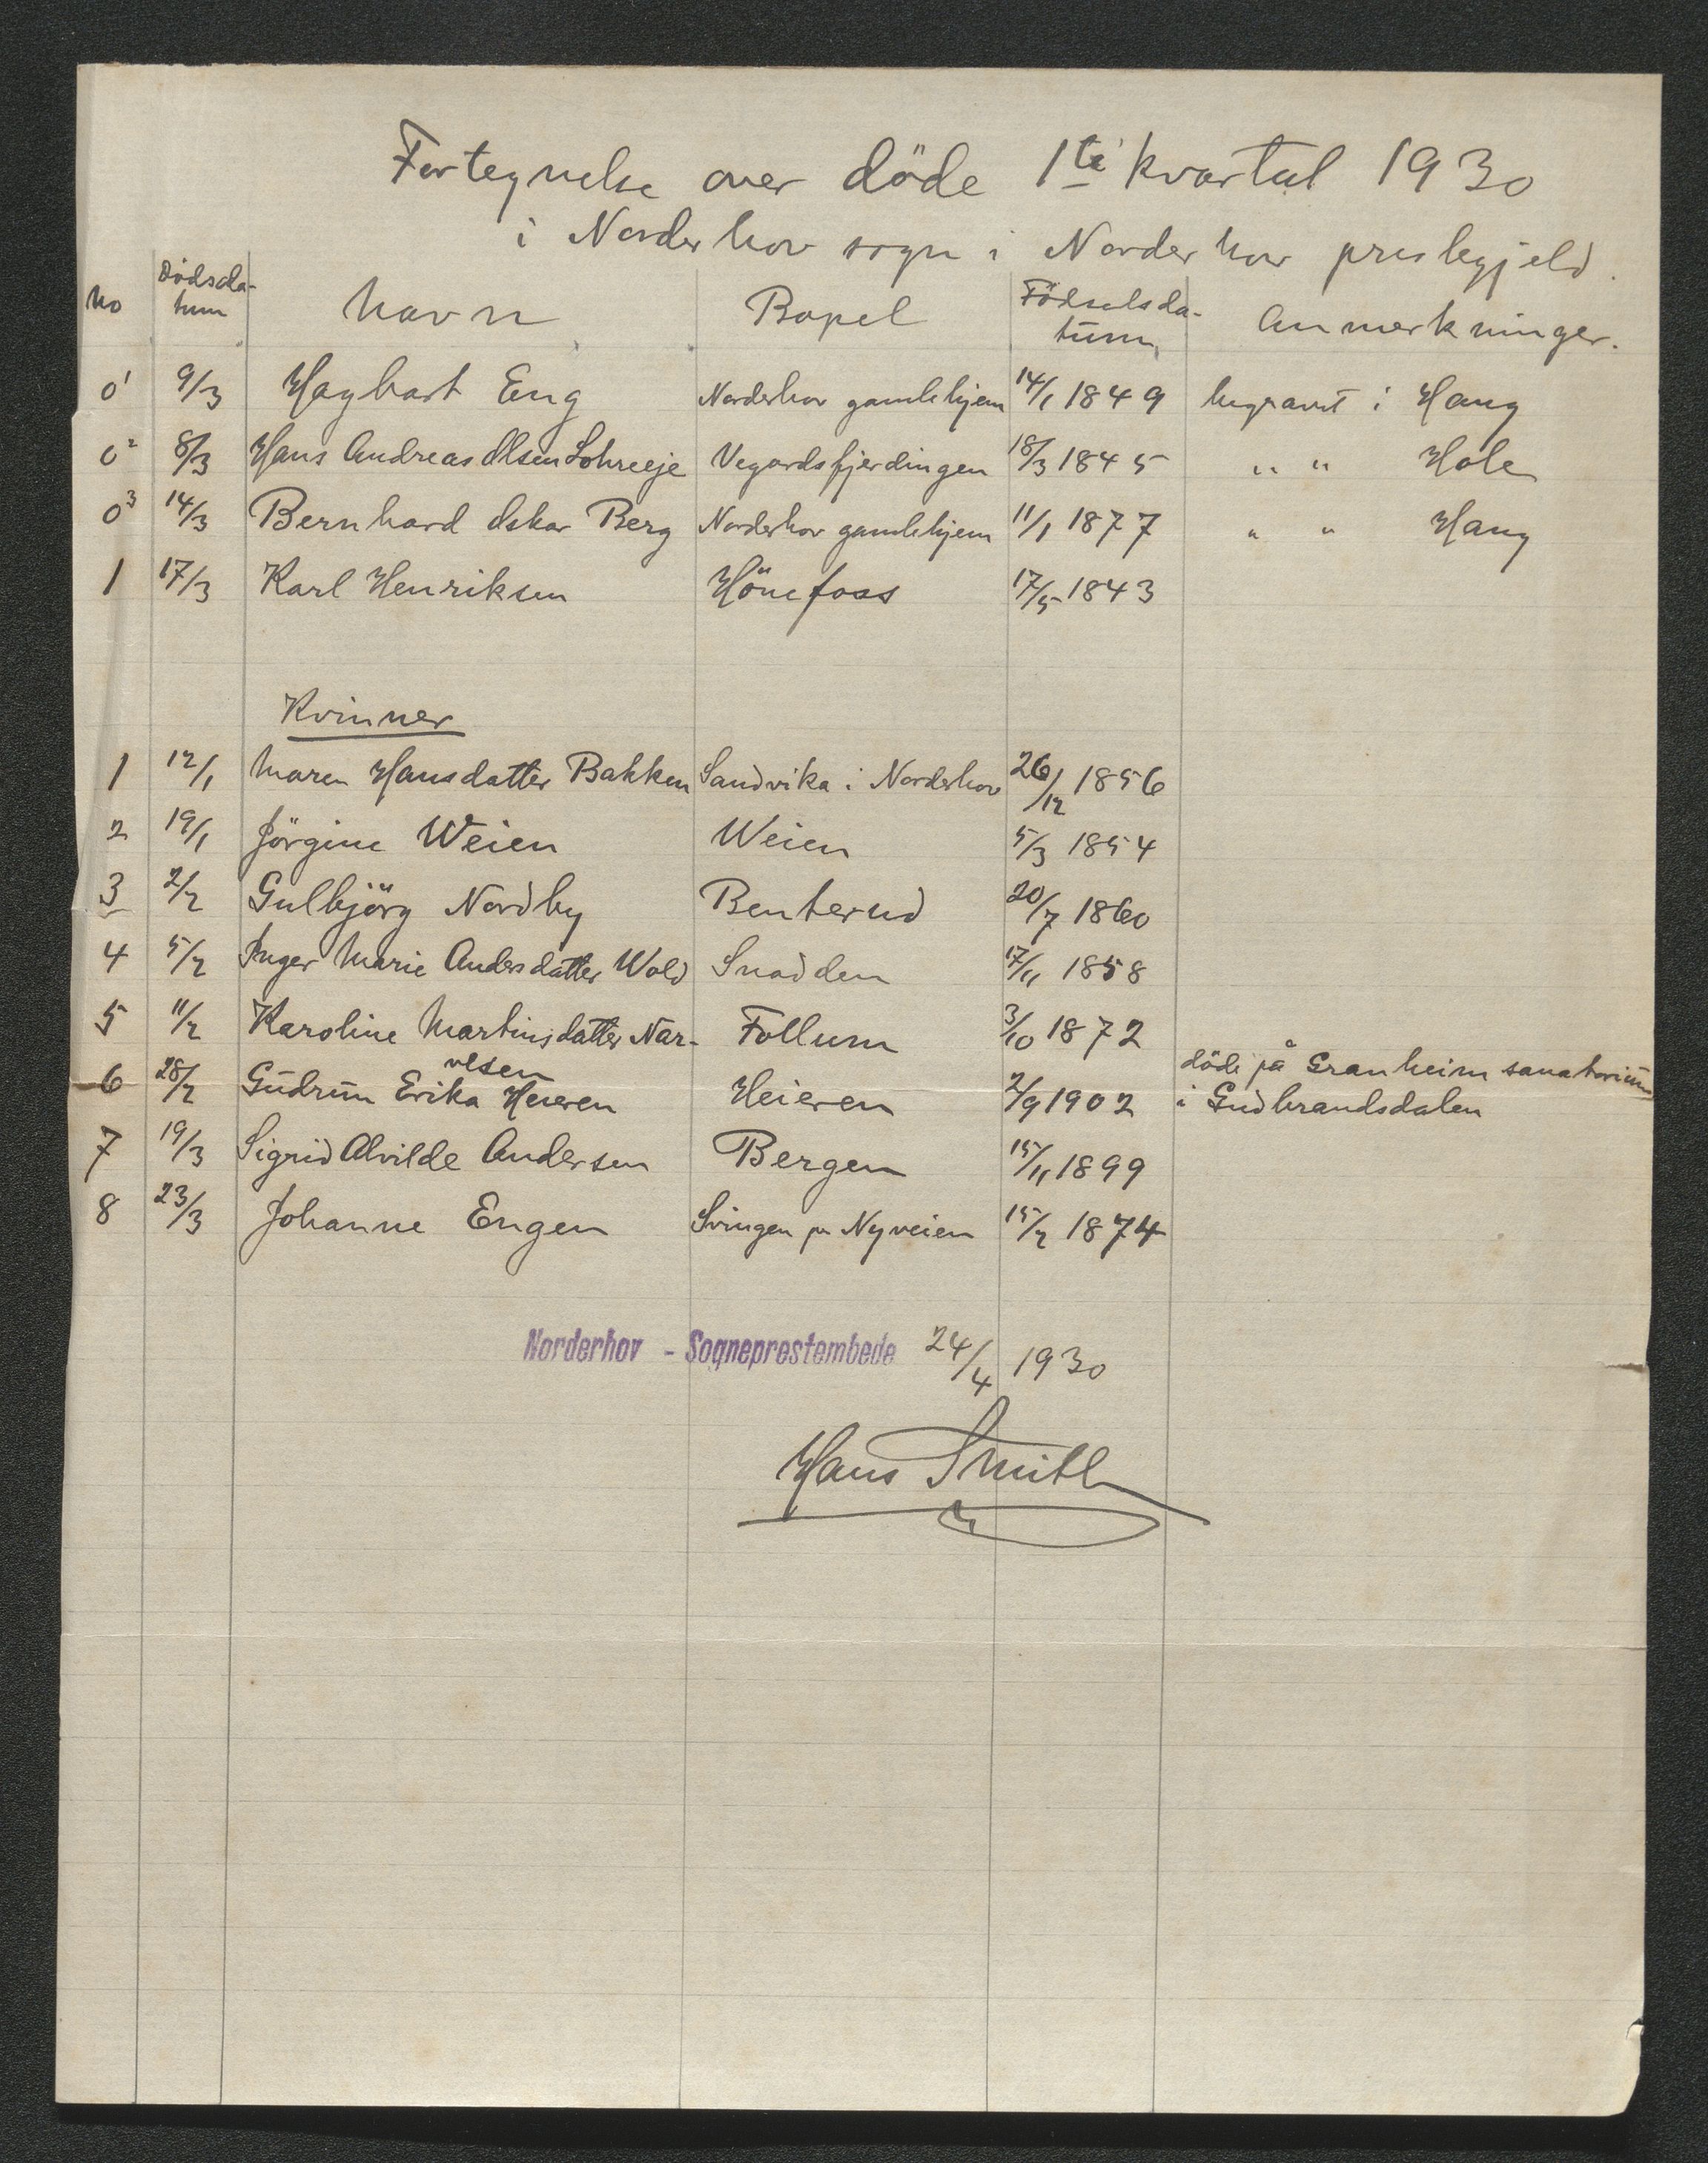 Fortegnelse over döde 1ste kvartal 1930
i Norderhov sogn i Norderhov prestegjeld.
No Dödsda- Navn Bopel Födselsda- Anmerkninger.
tum tum
0¹ 9/3 Hagbart Eng Norderhov gamlehjem 14/1 1849 begravet i Haug
0² 8/3 Hans Andreas Olsen Vegardsfjerdingen 18/3 1845 " " Hole
0³ 14/3 Bernhard Oskar Berg Norderhov gamlehjem 11/1 1877 " " Haug
1 17/3 Karl Henriksen Hönefoss 17/5 1843
Kvinner
1 12/1 Maren Hansdatter Bakken Sandvika i Norderhov 26/12 1856
2 19/1 Jörgine Weien Weien 5/3 1854
3 2/2 Gulbjörg Nordby Benterud 20/7 1860
4 5/2 Inger Marie Andersdatter Wold Snadden 17/11 1858
5 11/2 Karoline Martinsdatter Nar- Follum 3/10 1872
vesen döde på Granheim sanatorium
6 28/2 Gudrun Erika Heieren Heieren 2/9 1902 i Gudbrandsdalen
7 19/3 Sigrid Alvilde Andersen Bergen 15/11 1899
8 23/3 Johanne Engen Svingen pr Nyveien 15/2 1874
Norderhov - Sogneprestembede 24/4 1930
Hans Smith